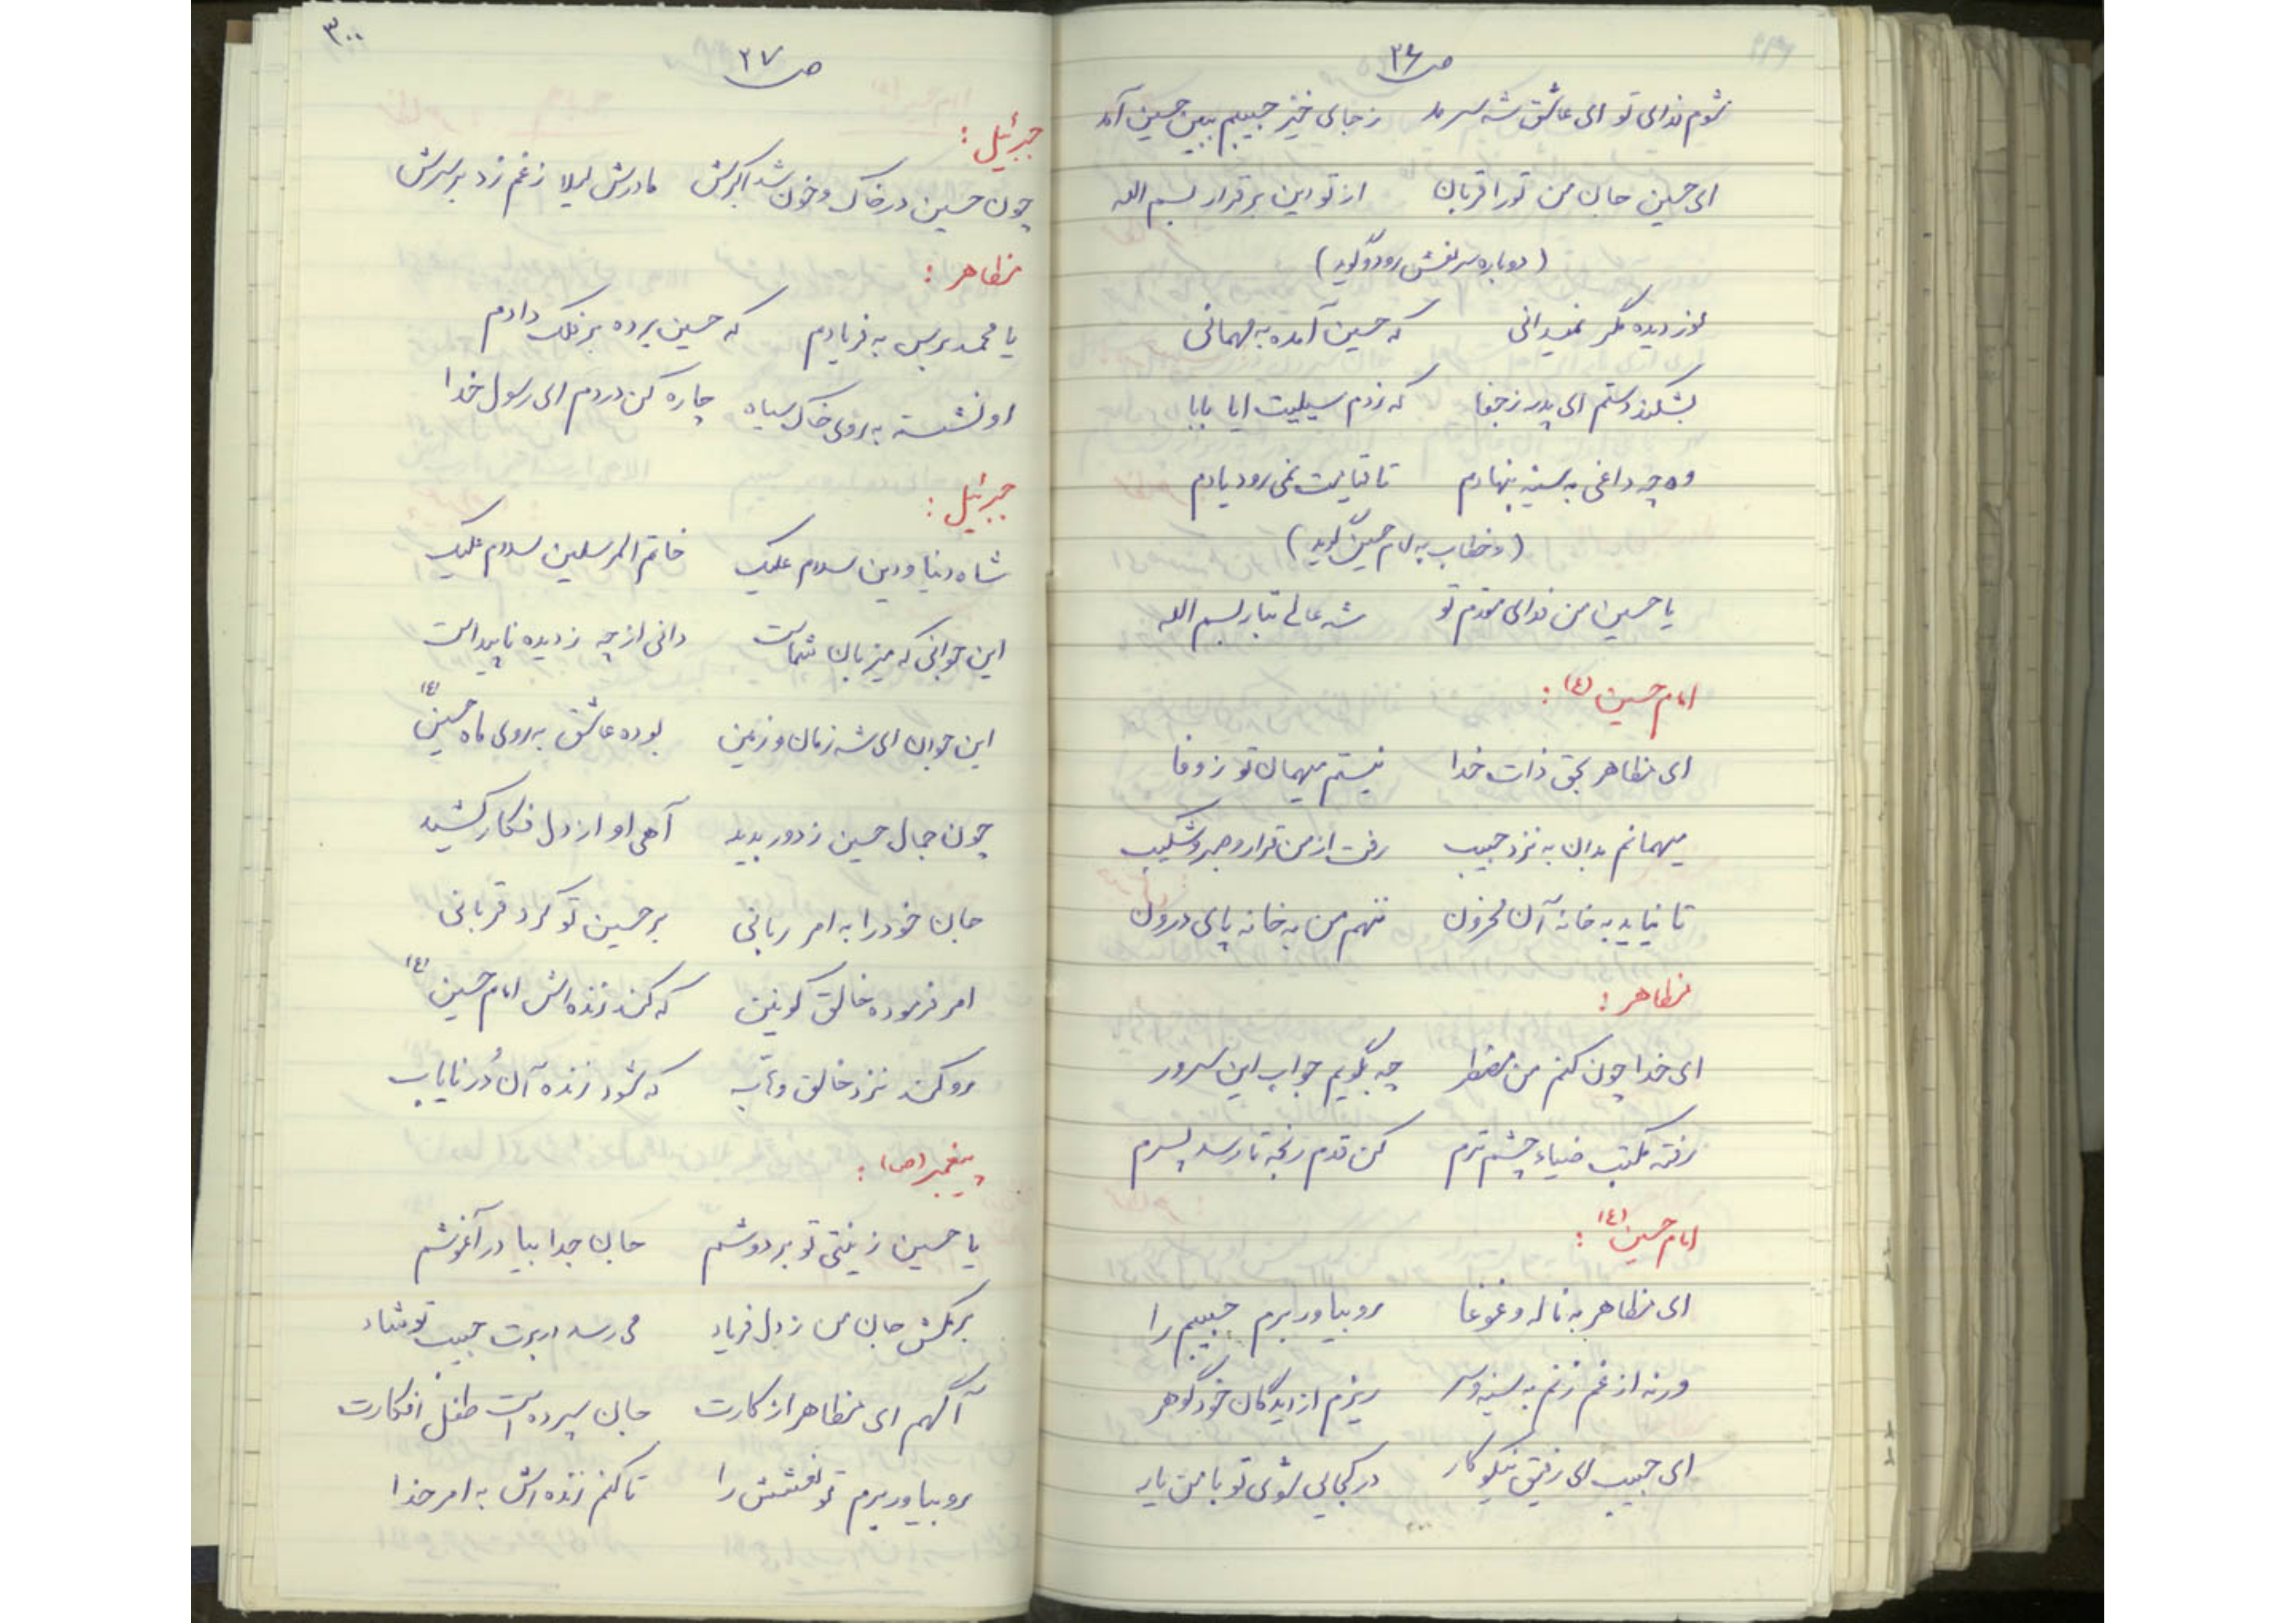 ص ۲۶
شوم فدای تو ای عاشق شه سرمد ز جای خیز حبیبم ببین حسین آمد
ای حسین جان من تو را قربان از تو این برقرار بسم الله
(دوباره سر نعش رود و گوید)
نور دیده مگر نمیدانی که حسین آمده به مهمانی
بشکند دستم ای پدر ز جفا که زدم سیلیت ایا بابا
وه چه داغی به سینه بنهادم تا قیامت نمی رود یادم
(و خطاب به امام حسین گوید)
یا حسین من فدای مقدم تو شه عالی تبار بسم الله
امام حسین (ع) :
ای مظاهر بحق ذات خدا نیستم میهمان تو ز وفا
میهمانم بدان به نزد حبیب رفت از من قرار و صبر و شکیب
تا نیاید به خانه آن محزون ننهم من به خانه پای درون
مظاهر :
ای خدا چون کنم من مضطر چه بگویم جواب این سرور
رفته مکتب ضیاء چشم ترم کن قدم رنجه تا رسد پسرم
امام حسین (ع) :
ای مظاهر به ناله و غوغا برو بیاور برم حبیبم را
ورنه از غم زنم به سینه و سر ریزم از دیدگان خود گوهر
ای حبیب ای رفیق نیکو کار در کجایی شوی تو با من یار
۳۰۰
ص ۲۷
جبرئیل :
چون حسین در خاک و خون شد اکبرش مادرش لیلا ز غم زد بر سرش
مظاهر :
یا محمد برس به فریادم که حسین برده بر فلک دادم
او نشسته به روی خاک سیاه چاره کن دردم ای رسول خدا
جبرئیل :
شاه دنیا و دین سلام علیک خاتم المرسلین سلام علیک
این جوانی که میزبان شماست دانی از چه ز دیده ناپیداست
این جوان ای شه زمان و زمین بوده عاشق به روی ماه حسین (ع)
چون جمال حسین ز دور بدید آهی او از دل فکار کشید
جان خود را به امر ربانی بر حسین تو کرد قربانی
امر فرموده خالق کونین که کند زنده اش امام حسین (ع)
رو کند نزد خالق وهاب که شود زنده آن دُر نایاب
پیغمبر (ص) :
یا حسین زینتی تو بر دوشم جان جدا بیا در آغوشم
برمکش جان من ز دل فریاد می رسد در برت حبیب تو شاد
آگهم ای مظاهر از کارت جان سپرده است طفل افکارت
برو بیاور برم تو نعشش را تا کنم زنده اش به امر خدا